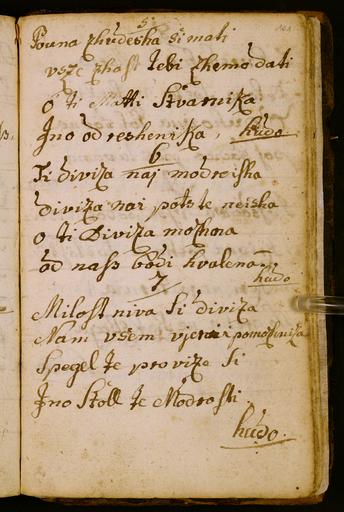 5
Pouna zhudesha si mati
vsze zhast tebi zhemo dati
o ti Matti Stvarniza
Jno odresheniza, hudo.
6
Ti diviza naj modreisha
diviza nai pohlteneisha
o ti Diviza mozhna
od nass bodi hvalena hudo
7
Milostniva si diviza
Nam vsem vjerni pomozhniza
Spegel te praviza si
Jno Stoll te Modrosti
hudo.